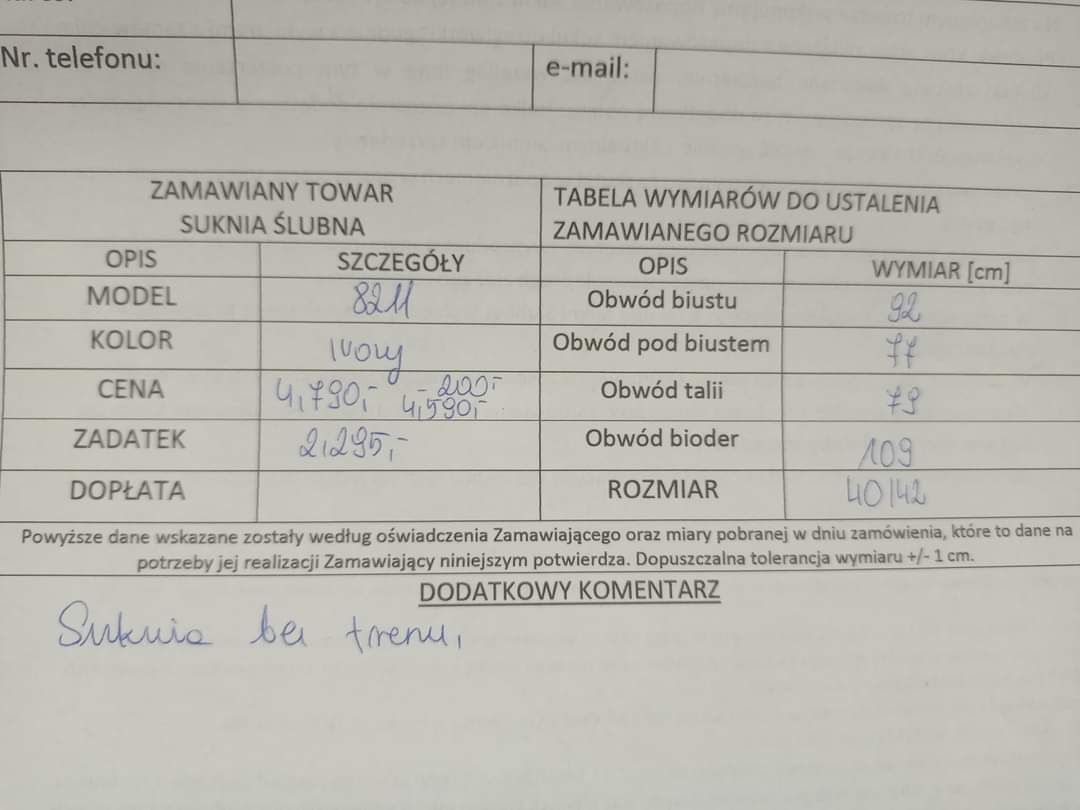 Nr. telefonu: e-mail:
ZAMAWIANY TOWAR
SUKNIA ŚLUBNA
TABELA WYMIARÓW DO USTALENIA
ZAMAWIANEGO ROZMIARU
OPIS SZCZEGÓŁY OPIS WYMIAR [cm]
MODEL 8211 Obwód biustu 92
KOLOR Ivory Obwód pod biustem 77
CENA 4,790,- - 200,- Obwód talii 79
4,590,-
ZADATEK 2,295,- Obwód bioder 109
DOPŁATA ROZMIAR 40/42
Powyższe dane wskazane zostały według oświadczenia Zamawiającego oraz miary pobranej w dniu zamówienia, które to dane na
potrzeby jej realizacji Zamawiający niniejszym potwierdza. Dopuszczalna tolerancja wymiaru +/- 1 cm.
DODATKOWY KOMENTARZ
Suknia bez trenu,